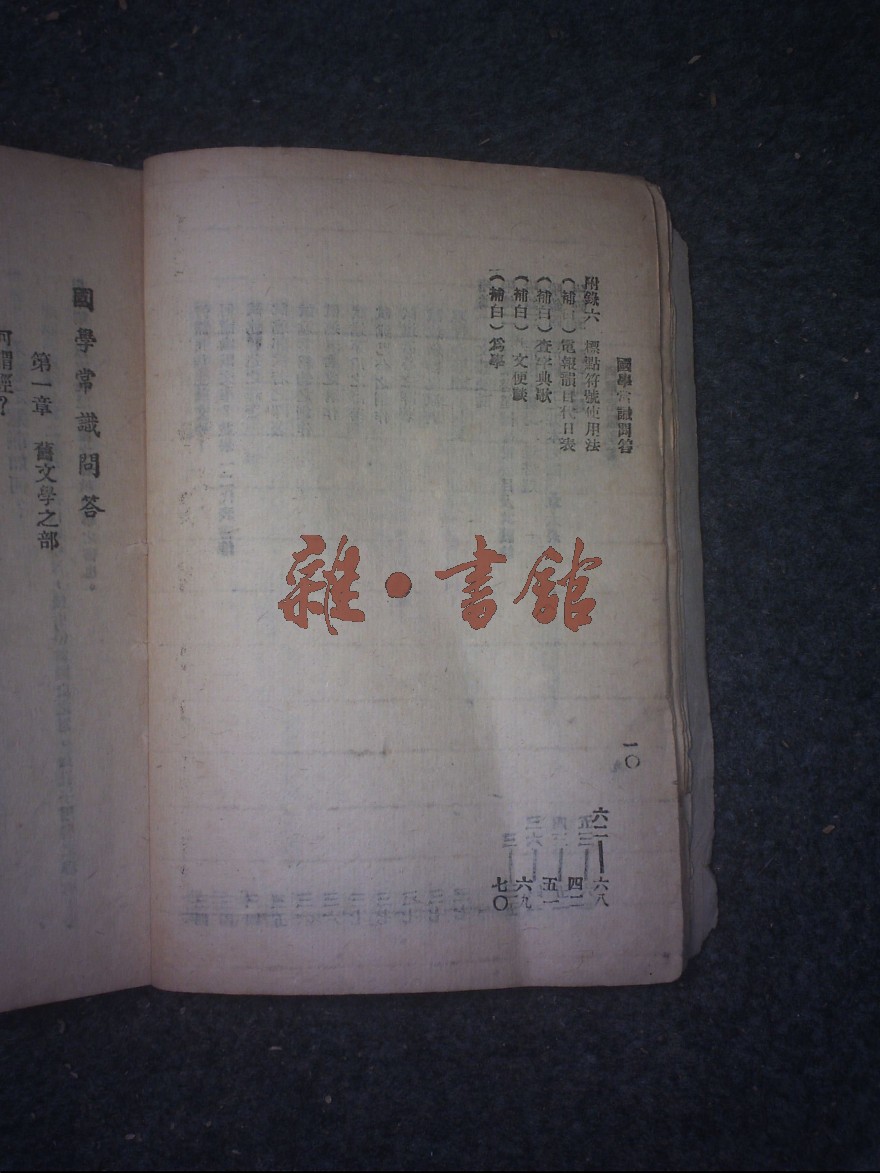 國學常識問答
一〇
附錄六 標點符號使用法 六二——六八
（補白）電報韻目代日表 四二
（補白）查字典歌 五一
（補白） 文便談 六九
（補白）爲學 七〇
國學常識問答
第一章 舊文學之部
何謂經？
雜·書館